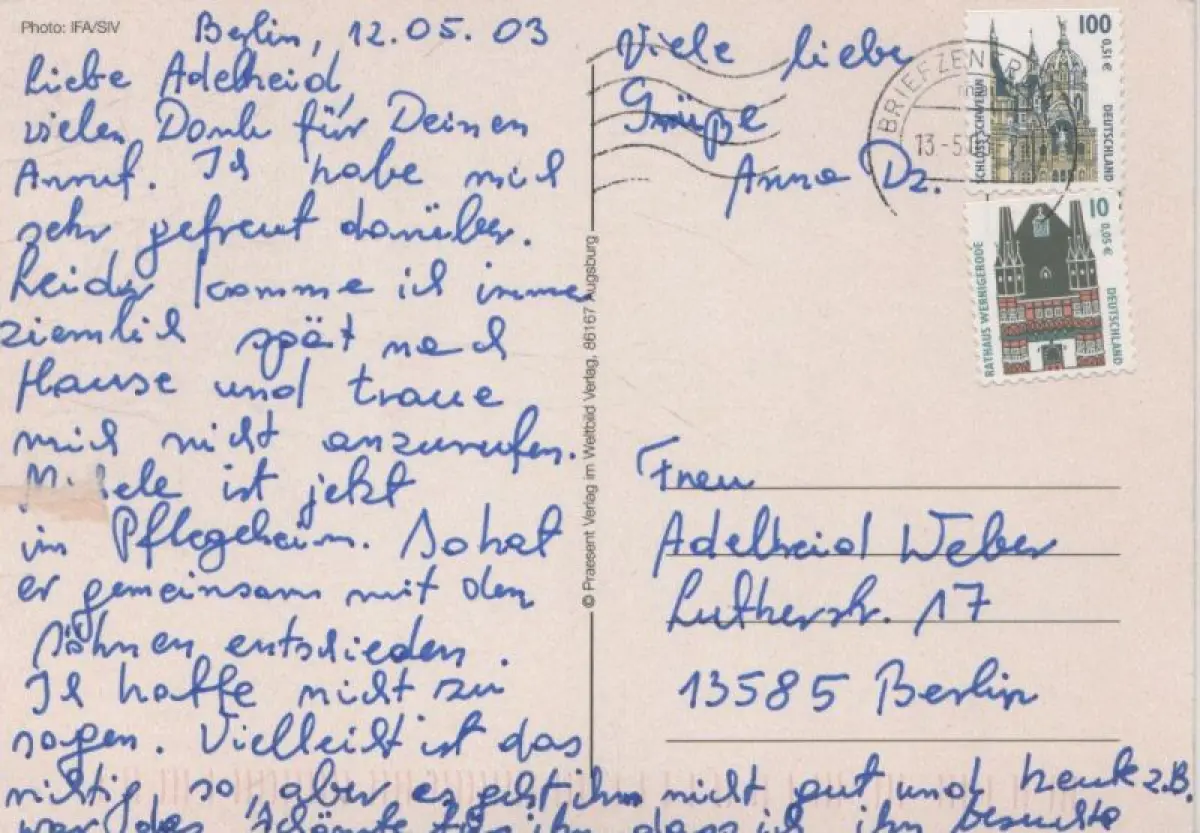 Photo: IFA/SIV
Berlin, 12.05.03
Liebe Adelheid,
vielen Dank für Deinen
Anruf. Ich habe mich
sehr gefreut darüber.
Leider komme ich imme
ziemlich spät nach
Hause und traue
mich nicht anzurufen.
ist jetzt
im Pflegeheim. So hat
er gemeinsam mit den
Söhnen entschieden.
Ich hatte nicht zu
sagen. Vielleicht ist das
richtig so, aber es geht ihm nicht gut und heute z.B.
war das Schönste für ihn, dass ich ihn besuchte
© Praesent Verlag im Weltbild Verlag, 86167 Augsburg
Viele liebe
Grüße
Anna Dz.
BRIEFZENTR
13.-5.
100
0,51 €
SCHLOSS SCHWERIN
DEUTSCHLAND
10
0,05 €
RATHAUS WERNIGERODE
DEUTSCHLAND
Frau
Adelheid Weber
Lutherstr. 17
13585 Berlin